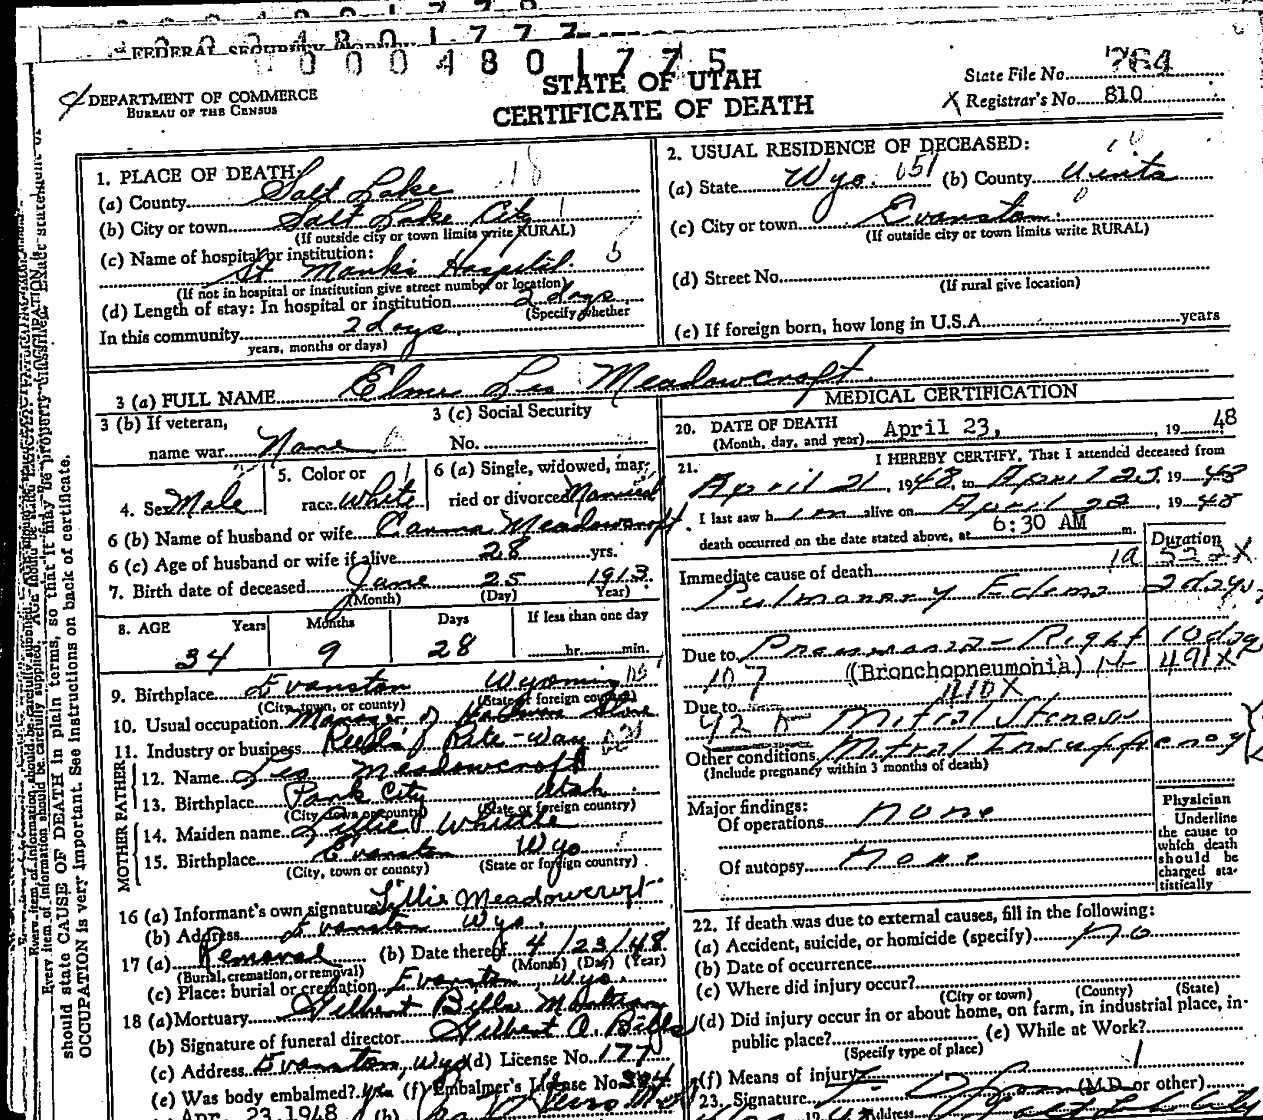 FEDERAL SECURITY
000480177 5
DEPARTMENT OF COMMERCE
BUREAU OF THE CENSUS
STATE OF UTAH
CERTIFICATE OF DEATH
State File No. 764
X Registrar's No. 810
1. PLACE OF DEATH:
(a) County Salt Lake
(b) City or town Salt Lake City
(If outside city or town limits write RURAL)
(c) Name of hospital or institution:
St Marks Hospital
(If not in hospital or institution give street number or location)
(d) Length of stay: In hospital or institution 2 days
(Specify whether
In this community 2 days
years, months or days)
2. USUAL RESIDENCE OF DECEASED:
(a) State Wyo. 651 (b) County Uinta
(c) City or town Evanston
(If outside city or town limits write RURAL)
(d) Street No.
(If rural give location)
(e) If foreign born, how long in U.S.A. years
3 (a) FULL NAME Elmer Les Meadowcroft
3 (b) If veteran,
name war None
3 (c) Social Security
No.
4. Sex Male
5. Color or
race White
6 (a) Single, widowed, mar-
ried or divorced Married
6 (b) Name of husband or wife Meadowcroft
6 (c) Age of husband or wife if alive 28 yrs.
7. Birth date of deceased June 25 1913
(Month) (Day) Year)
8. AGE Years Months Days If less than one day
34 9 28 hr. min.
9. Birthplace Evanston Wyoming
(City, town, or county) (State or foreign country)
10. Usual occupation Manager of Store
11. Industry or business Rite-Way
MOTHER FATHER
12. Name Les Meadowcroft
13. Birthplace Park City Utah
(City, town or county) (State or foreign country)
14. Maiden name Whittle
15. Birthplace Evanston Wyo
(City, town or county) (State or foreign country)
16 (a) Informant's own signature Lillie Meadowcroft
(b) Address Evanston Wyo.
17 (a) Removal (b) Date thereof 4/23/48
(Burial, cremation, or removal) (Month) (Day) (Year)
(c) Place: burial or cremation Evanston, Wyo.
18 (a) Mortuary Gilbert Bills Mortuary
(b) Signature of funeral director Gilbert A. Bills
(c) Address Evanston, Wyo (d) License No. 177
(e) Was body embalmed? yes (f) Embalmer's License No.
Apr. 23 1948 (b)
MEDICAL CERTIFICATION
20. DATE OF DEATH
(Month, day, and year) April 23, , 19 48
21. I HEREBY CERTIFY, That I attended deceased from
April 21, 1948, to April 23, 19 48
I last saw him alive on April 23, 19 48
death occurred on the date stated above, at 6:30 AM m.
Duration
Immediate cause of death 522X
Pulmonary Edema 2 days
Due to Pneumonia - Right 10 days
107 (Bronchopneumonia) 491X
410X
Due to
Mitral Stenosis
Other conditions Mitral Insufficiency
(Include pregnancy within 3 months of death)
Major findings:
Of operations none
Of autopsy none
Physician
Underline
the cause to
which death
should be
charged sta-
tistically
22. If death was due to external causes, fill in the following:
(a) Accident, suicide, or homicide (specify) no
(b) Date of occurrence
(c) Where did injury occur?
(City or town) (County) (State)
(d) Did injury occur in or about home, on farm, in industrial place, in
public place? (e) While at Work?
(Specify type of place)
(f) Means of injury
23. Signature (M.D. or other)
Address
should state CAUSE OF DEATH in plain terms, so that it may be properly classified.
OCCUPATION is very important. See instructions on back of certificate.